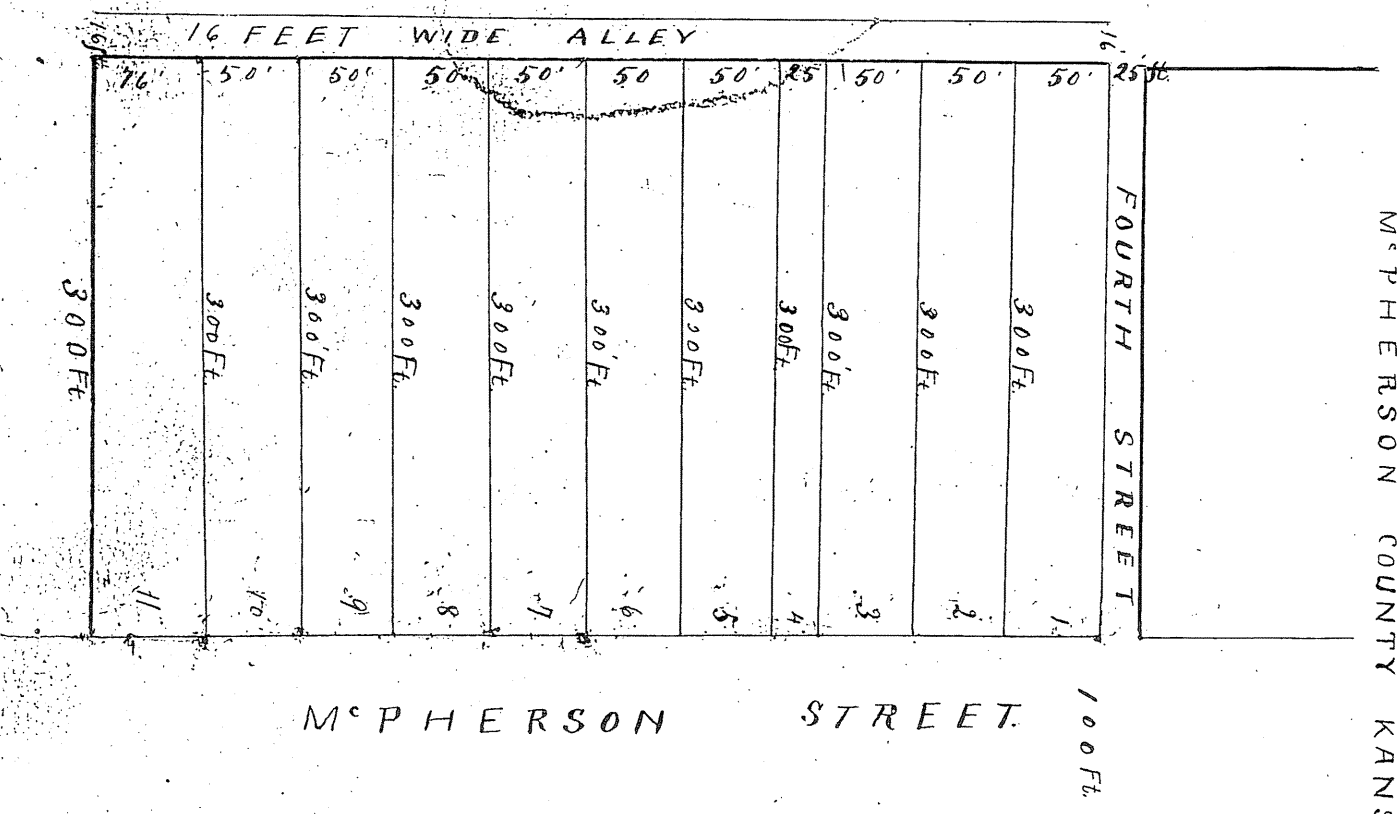 16 FEET WIDE ALLEY
16 ft
16'
76' 50' 50' 50 50' 50 50' 25 50' 50' 50' 25 ft.
FOURTH STREET
300 Ft.
300 Ft.
300 Ft.
300 Ft.
300 Ft.
300 Ft.
300 Ft.
300 Ft.
300 Ft.
300 Ft.
300 Ft.
11 10 9 8 7 6 5 4 3 2 1.
McPHERSON STREET.
100 Ft.
McPHERSON COUNTY KANS